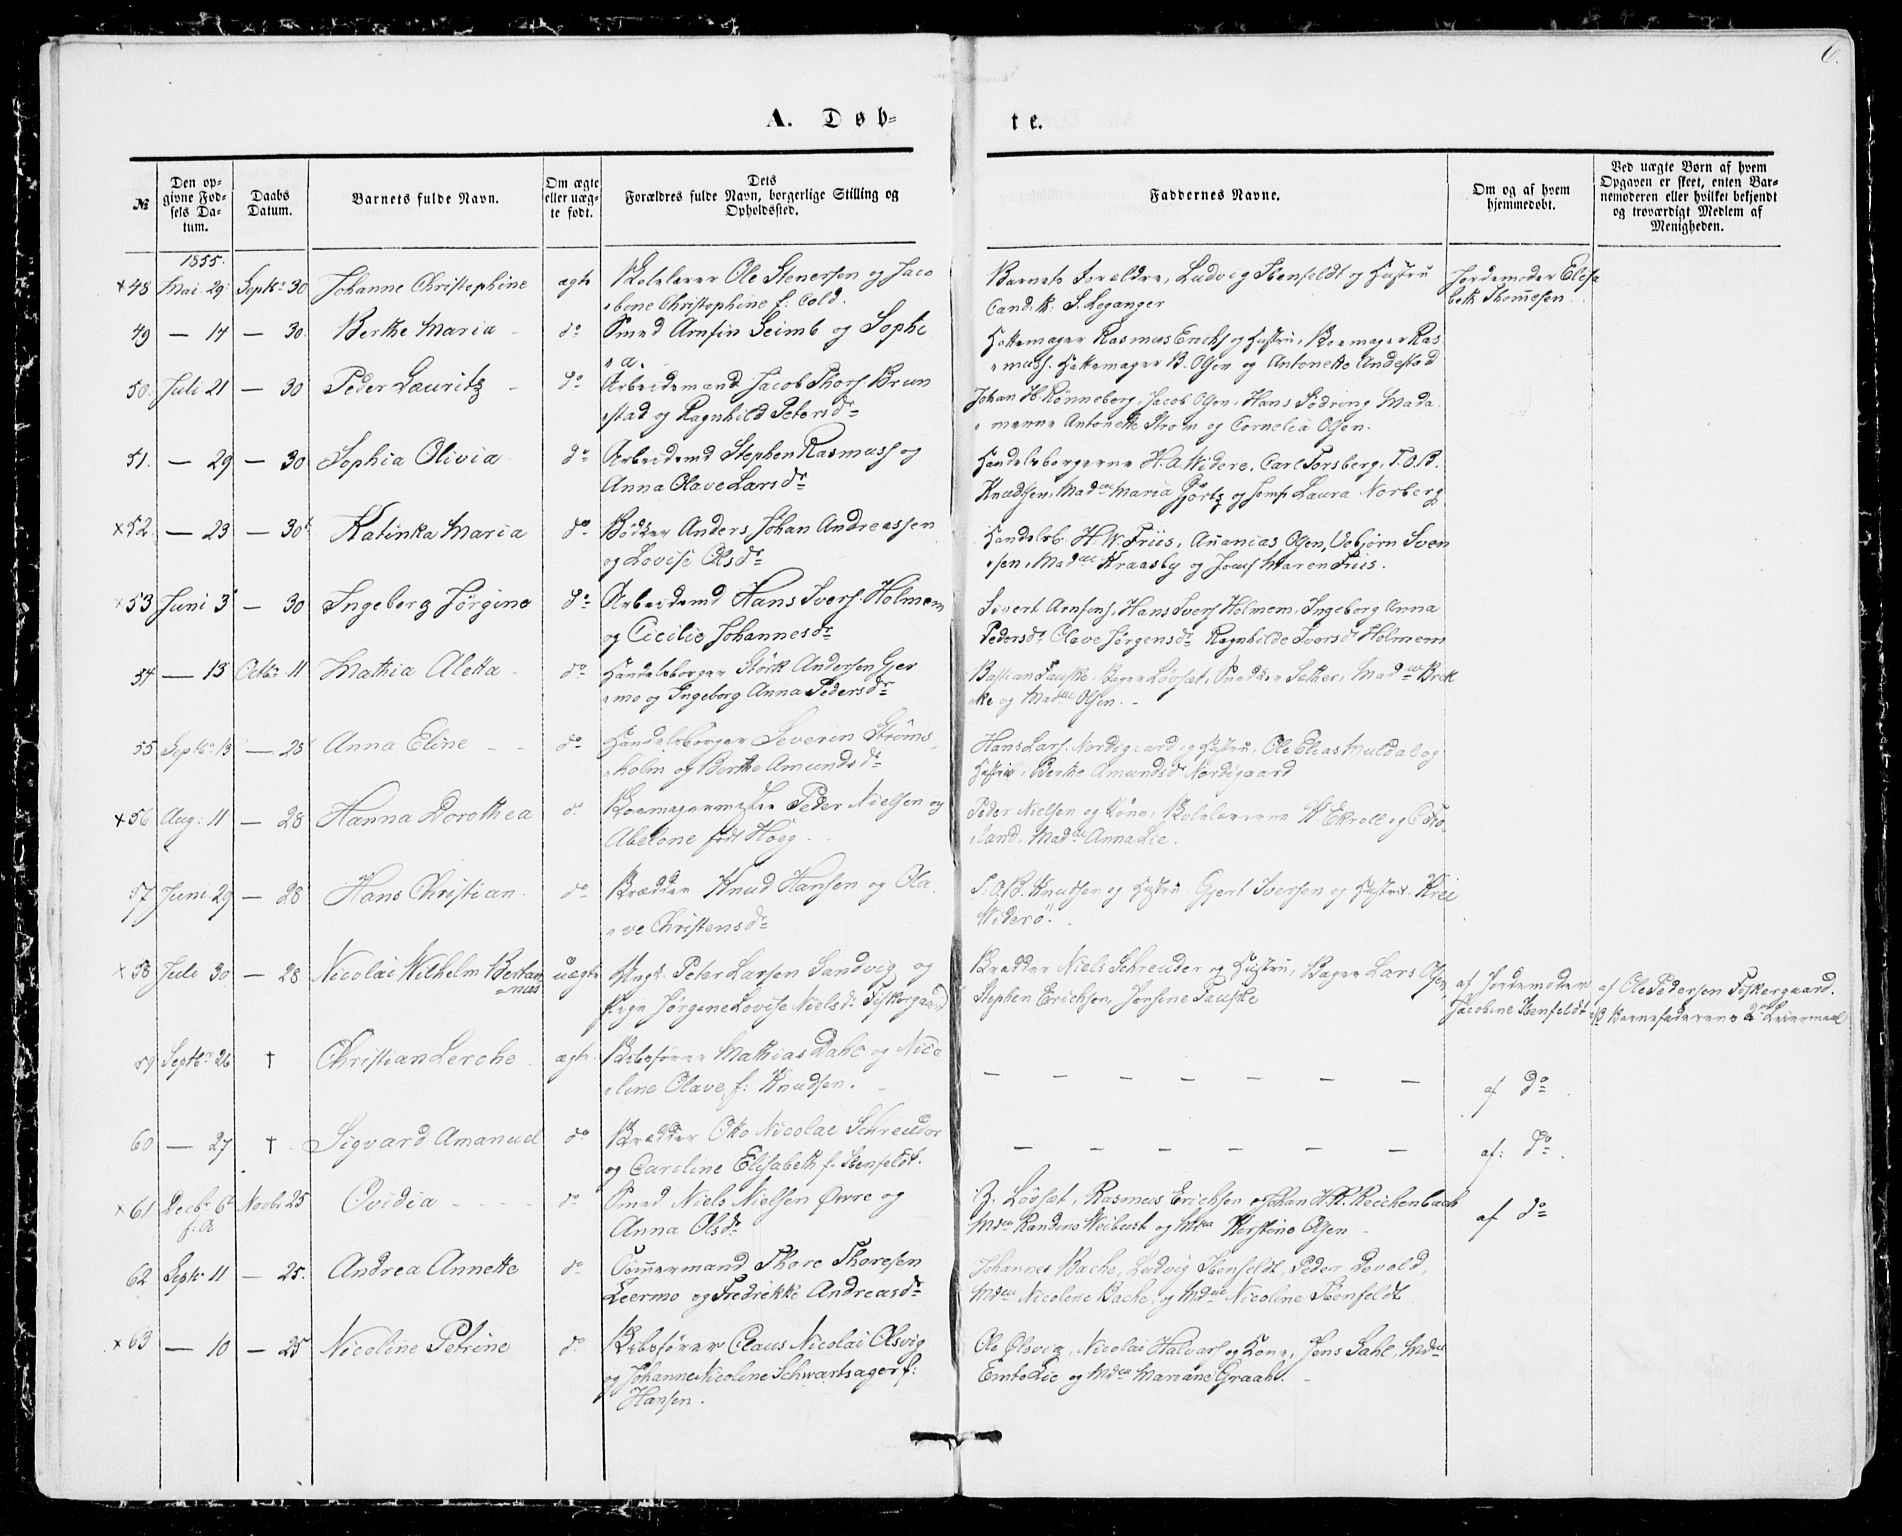 6.
A. Døb-
te.
№
Den op-
givne Fød-
sels Da-
tum.
Daabs
Datum.
Barnets fulde Navn.
Om ægte
eller uæg-
te født.
Dets
Forældres fulde Navn, borgerlige Stilling og
Opholdssted.
Faddernes Navne.
Om og af hvem
hjemmedøbt.
Ved uægte Børn af hvem
Opgaven er skeet, enten Bar-
nemoderen eller hvilket bekjendt
og troværdigt Medlem af
Menigheden.
1855.
×48 Mai 29 Septr 30 Johanne Christophine ægte Skolelærer Ole Stenersen og Jaco
bine Christophine f: Cold.
Barnets Forældre, Ludvig Stenfeldt og Hustru
Cand. S. Leganger
Jordemoder Elisa
beth Thomesen.
49 — 14 — 30 Berthe Maria do Smed Arnfin Seimb og Sophi
a.
Hattemager Rasmus Erichs og Hustru, Skomager Ras
mus. Hattemager B. Olsen og Antonette Andestad
50. Juli 21 — 30 Peder Lauritz do Arbeidsmand Jacob Thors Brun
stad og Ragnhild Petersdr
Johan H. Rønneberg, Jacob Olsen, Hans Sødring Mada
merne Antonette Strøm og Cornelia Olsen.
51. — 29 — 30 Sophia Olivia do Arbeidsmd Stephen Rasmuss og
Anna Olave Larsdr
Handelsborgerne H. A. Widerø, Carl Forsberg, T. O. B.
Knudsen, Made Maria Gørtz og Jomf Laura Norberg
×52. — 23 — 30 Katinka Maria do Bødker Anders Johan Andreassen
og Lovise Olsdr
Handelsb. H. W. Friis, Ananias Olsen, Vebjørn Sven
sen, Made Kraasby og Jomf Maren Friis.
×53 Juni 3 — 30 Ingeborg Jørgine do Arbeidsmd Hans Ivers. Holmem
og Cicilie Johannesdr
Sivert Arnfens, Hans Ivers Holmem, Ingeborg Anna
Pedersdr Olave Jørgensdr Ragnhilde Iversdr Holmem
54 — 13 Octbr 11 Mathia Aletta do Handelsborger Størk Andersen Gjer
mo og Ingeborg Anna Pedersdr
Bastian Fauske, Bager Løvset, Snedker Sether, Made Brek
ke og Made Olsen.
55 Septbr 13 — 28 Anna Eline do Handelsborger Severin Strøms
holm og Berthe Amundsdr
Hans Lars. Nordigaard og Hustru, Ole Elias Muldal og
Hustru, Berthe Amundsdr Nordigaard
×56 Aug: 11 — 28 Hanna Dorothea do Skomagermester Peder Nielsen og
Abelone født Høeg
Peder Nielsen og Kone, Skolelærerne Ekroll og
land, Made Anna Lie.
57 Juni 29 — 28 Hans Christian do Skrædder Knud Hansen og Ola
ve Christensdr
T. O. B. Knudsen og Hustru Gjert Iversen og Hustru
Widerø.
×58 Juli 30 — 28 Nicolai Wilhelm Bertin
nius uægte Ungk. Peter Larsen Sandvig og
Pige Jørgine Lovise Nielsdr Fiskergaard
Skrædder Niels Schreuder og Hustru, Bager Lars Olsen
Stephen Erichsen, Jensine Fauske
af Jordemoder
Jacobine Stenfeldt
af Ole Pedersen Fiskergaard.
NB Barnefaderens 2det Leiermaal
59 Septbr 26 † Christian Lerche ægte Skibsfører Mathias Dahl og Nico
line Olave f: Knudsen.
— — — — — — — af do
60 — 27 † Sigvard Amanuel do Skrædder Otto Nicolai Schreuder
og Caroline Elisabeth f. Stenfeldt.
— — — — — — — af: do
×61 Decbr 6
f: A Novbr 25 Ovidia do Smed Niels Nielsen Øvre og
Anna Olsdr
Z. Løvset, Rasmus Erichsen og Johan H. R. Reichenbach
Mde Randine Weibust og Mde Kirstine Olsen
af do
62 Septbr 11 — 25. Andrea Annette do Tømmermand Thore Thoresen
Leermo og Fredrikke Andreasdr
Johannes Bache, Ludvig Stenfeldt, Peder Devold,
Mde Nicoline Bache, og Mde Nicoline Stenfeldt.
×63 — 10 — 25 Nicoline Petrine do Skibsfører Claus Nicolai Olsvig
og Johanne Nicoline Schwartsager f:
Hansen.
Ole Olsvig, Nicolai Halvars og Kone, Jens Dahl, Mde
Lie og Mde Mariane Graahl.